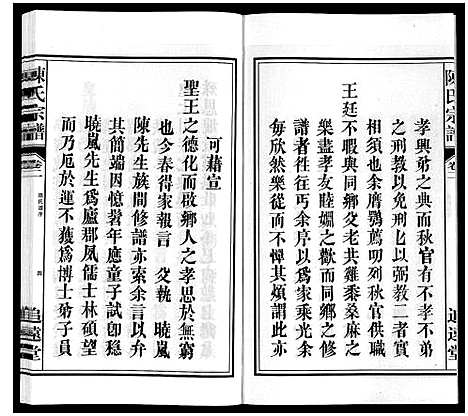 陳氏宗譜
卷一
追遠堂
孝興弟之典而秋官有不孝不弟
之刑教以免刑匕以弼教二者實
相須也余膺鶚薦叨列秋官供職
王廷不與同鄉父老共雞黍桑麻之
樂盡孝友睦婣之歡而同鄉修
譜者徃徃丐余序以為家乘光余
每欣然樂從而不憚其煩謂此
可藉宣
聖王之德化而啟鄉人之孝思於無窮
也今春得家報言 父執 曉嵐
陳先生族間修譜亦索余言以弁
其簡端因憶昔年應童子試卽穩
曉嵐先生為廬郡夙儒士林碩望
而乃厄於運不獲為博士弟子員
陳氏宗譜
卷一
陳氏譜序
四
追遠堂